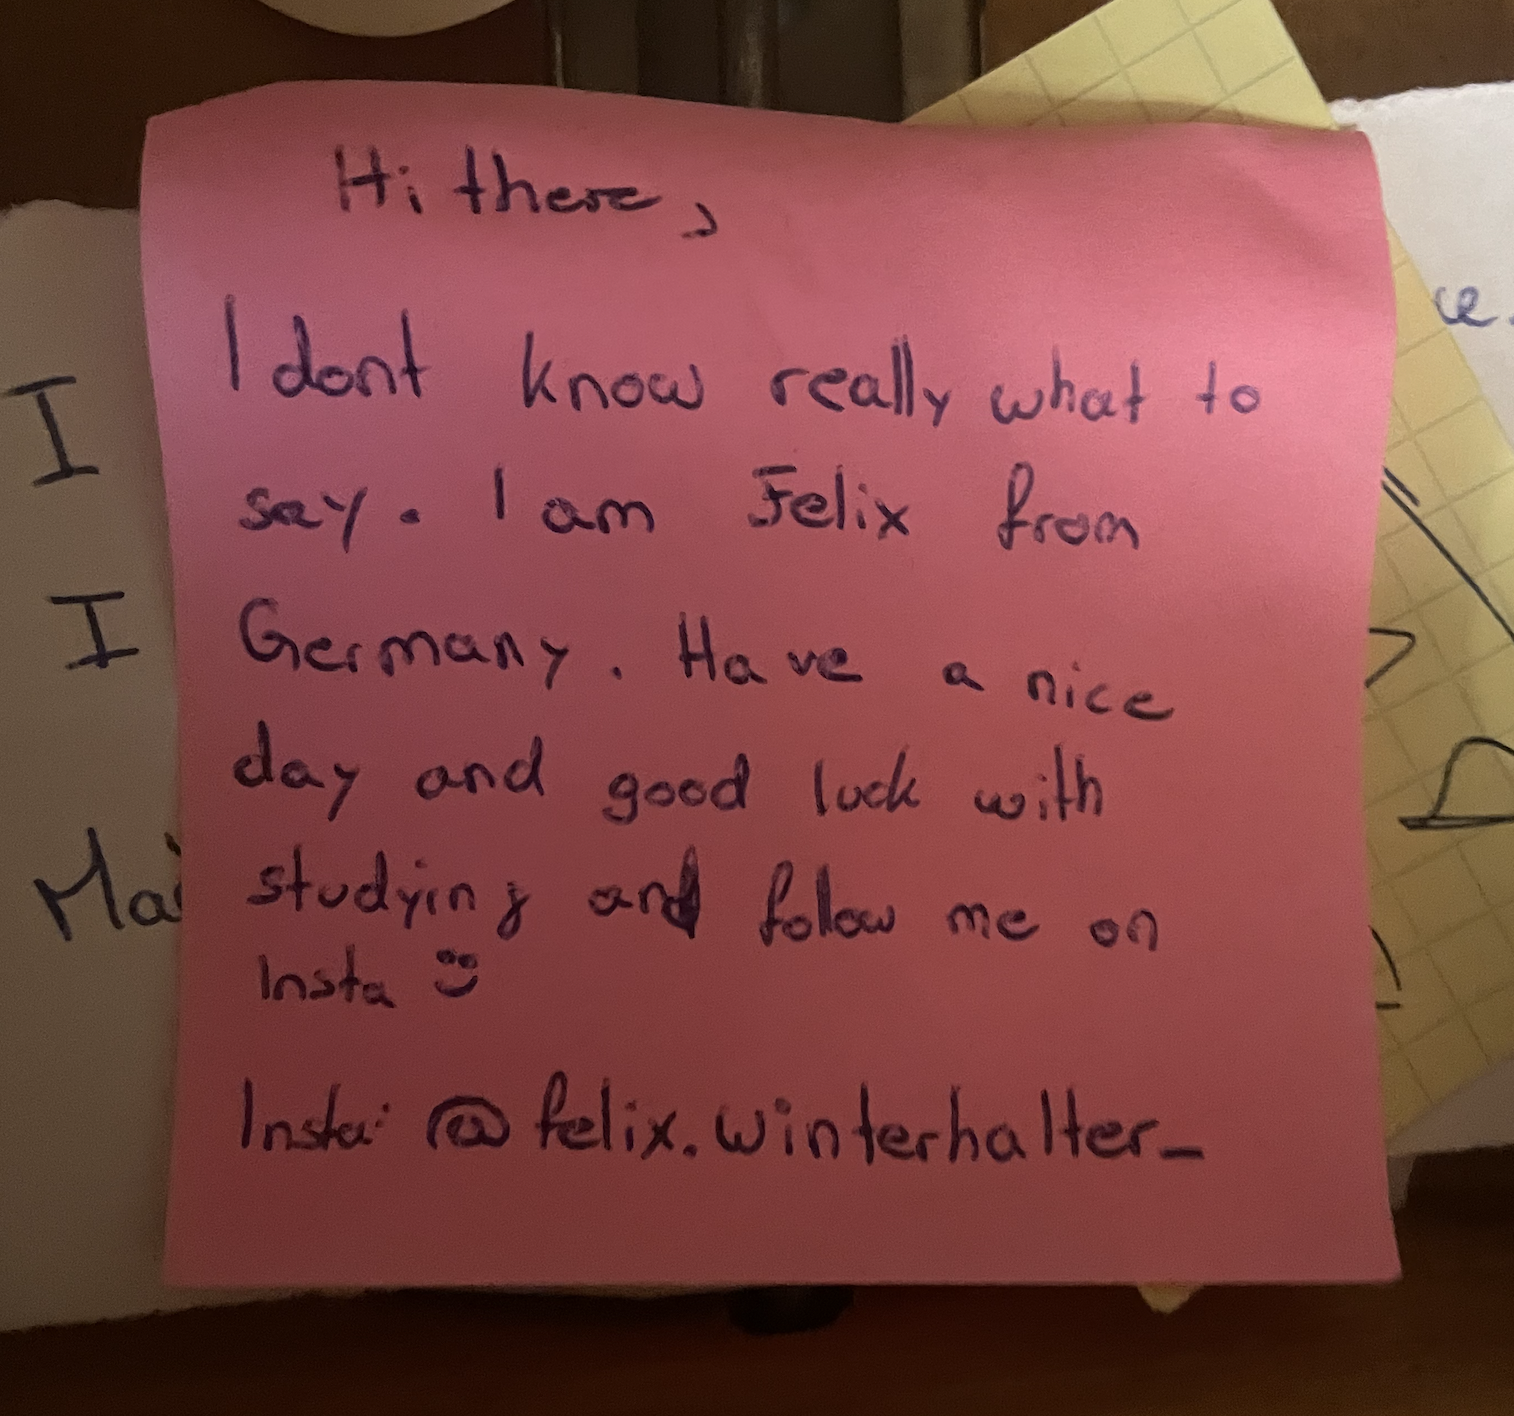 Hi there,
I dont know really what to
say. I am Felix from
Germany. Have a nice
day and good luck with
studying and follow me on
Insta
Insta: @felix.winterhalter_
I
I